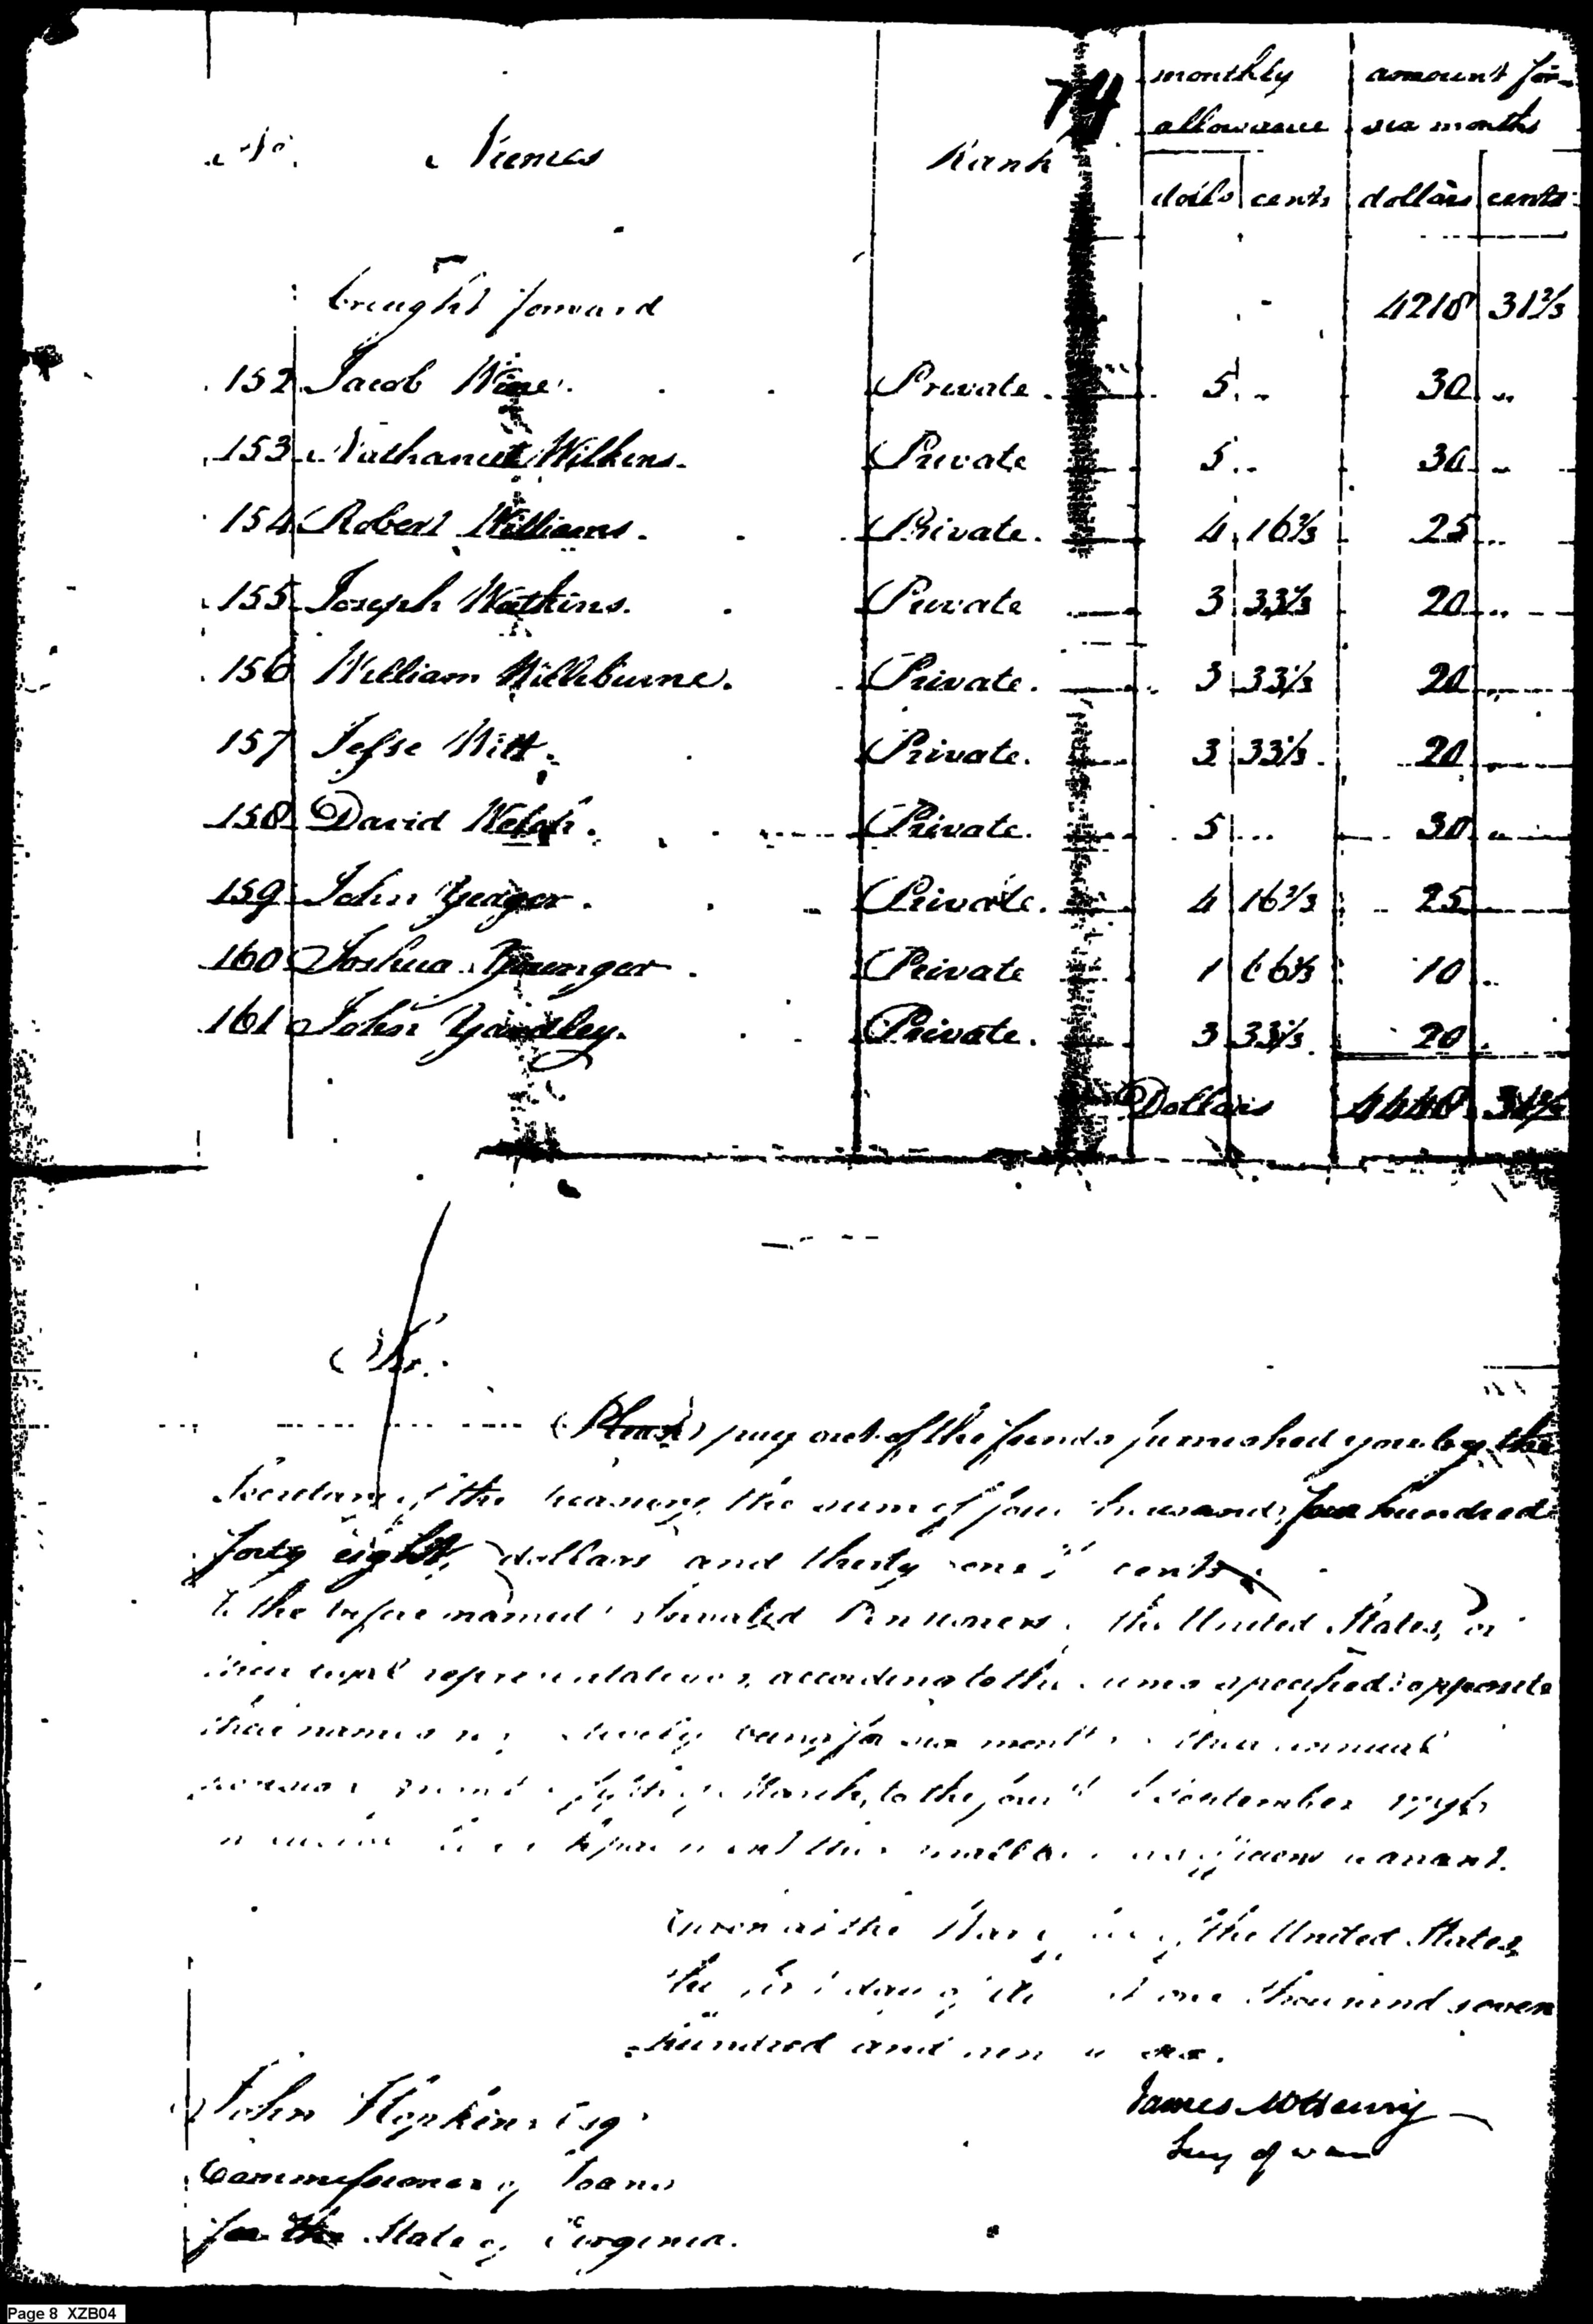 74
monthly allowance amount for six months
No. Names Rank dolls cents dollars cents
brought forward 4218 31⅔
152 Jacob Wine. Private. 5 .. 30 ..
153 Nathaniel Wilkens. Private 5 .. 30 ..
154 Robert Williams. Private. 4 16⅔ 25 ..
155 Joseph Watkins. Private 3 33⅓ 20 ..
156 William Private. 3 33⅓ 20 ..
157 Jesse Witt. Private. 3 33⅓ 20
158 David Welch. Private. 5 ... 30 ..
159 John Yeager. Private. 4 16⅔ 25
160 Joshua Younger. Private 1 66⅔ 10 ..
161 John Yardley. Private. 3 33⅓ 20 .
Dollars 4448 31⅔
Sir.
Please pay out of the funds furnished you by the
Secretary of the treasury, the sum of four thousand, four hundred
forty eight, dollars and thirty one cents
to the before named Invalid Pensioners the United States, or
their legal representatives, according to the sums specified opposite
their names being for six months their annual
March, to the September
this warrant.
Given at the the United States,
the day of one thousand seven
hundred and
John Hopkins Esqr
Commissioner of Loans
for the State of Virginia.
James McHenry
Secy of war
Page 8 XZB04